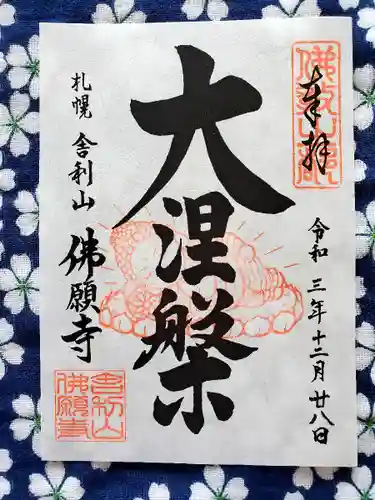 奉拝
令和三年十二月廿八日
大涅槃
札幌 舎利山 佛願寺
舎利山
佛願寺